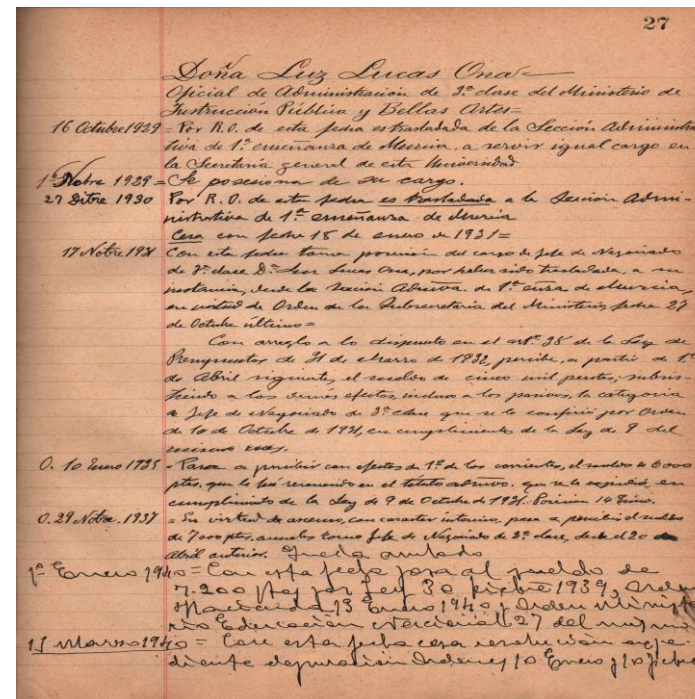 27
Doña Luz Lucas Ona=
Oficial de Administración de 3ª clase del Ministerio de
Instrucción Pública y Bellas Artes=
16 Octubre 1929 = Por R.O. de esta fecha es trasladada de la Sección Administra
tiva de 1ª enseñanza de Murcia, a servir igual cargo en
la Secretaría general de esta Universidad
1º Nobre 1929 = Se posesiona de su cargo.
27 Ditre 1930 Por R.O. de esta fecha es trasladada a la Sección Admi-
nistrativa de 1ª enseñanza de Murcia
Cesa con fecha 18 de enero de 1931=
17 Notre 1931 Con esta fecha toma posesión del cargo de Jefe de Negociado
de 3ª clase Dª Luz Lucas Ona, por haber sido trasladada, a su
instancia, desde la Sección Admva. de 1ª enza de Murcia,
en virtud de Orden de la Subsecretaría del Ministerio, fecha 27
de Octubre último=
Con arreglo a lo dispuesto en el artº 38 de la Ley de
Presupuestos de 31 de Marzo de 1932, percibe, a partir de 1º
de Abril siguiente, el sueldo de cinco mil pesetas, subsis-
tiendo a los demás efectos, incluso a los pasivos, la categoría
de Jefe de Negociado de 3ª clase que se le confirió por Orden
de 10 de Octubre de 1931, en cumplimiento de la Ley de 9 del
mismo mes.
O. 10 Enero 1935 = Pasa a percibir con efectos de 1º de los corrientes, el sueldo de 6000
ptas. que le fué reconocido en el título admvo. que se le expidió en
cumplimiento de la Ley de 9 de Octubre de 1931. Posesión 14 Enero.
O. 29 Notre. 1937 = En virtud de ascenso, con caracter interino, pasa a percibir el sueldo
de 7000 ptas. anuales como Jefe de Negociado de 2ª clase, desde el 20 de
Abril anterior. Queda anulado
1º Enero 1940 = Con esta fecha pasa al sueldo de
7.200 ptas por Ley 30 1939, Orden
Hacienda 13 Enero 1940 y Orden Ministe
rio Educación Nacional 27 del mismo
15 Marzo 1940 = Con esta fecha cesa resolución expe
diente depuración Ordenes 10 Enero y 10